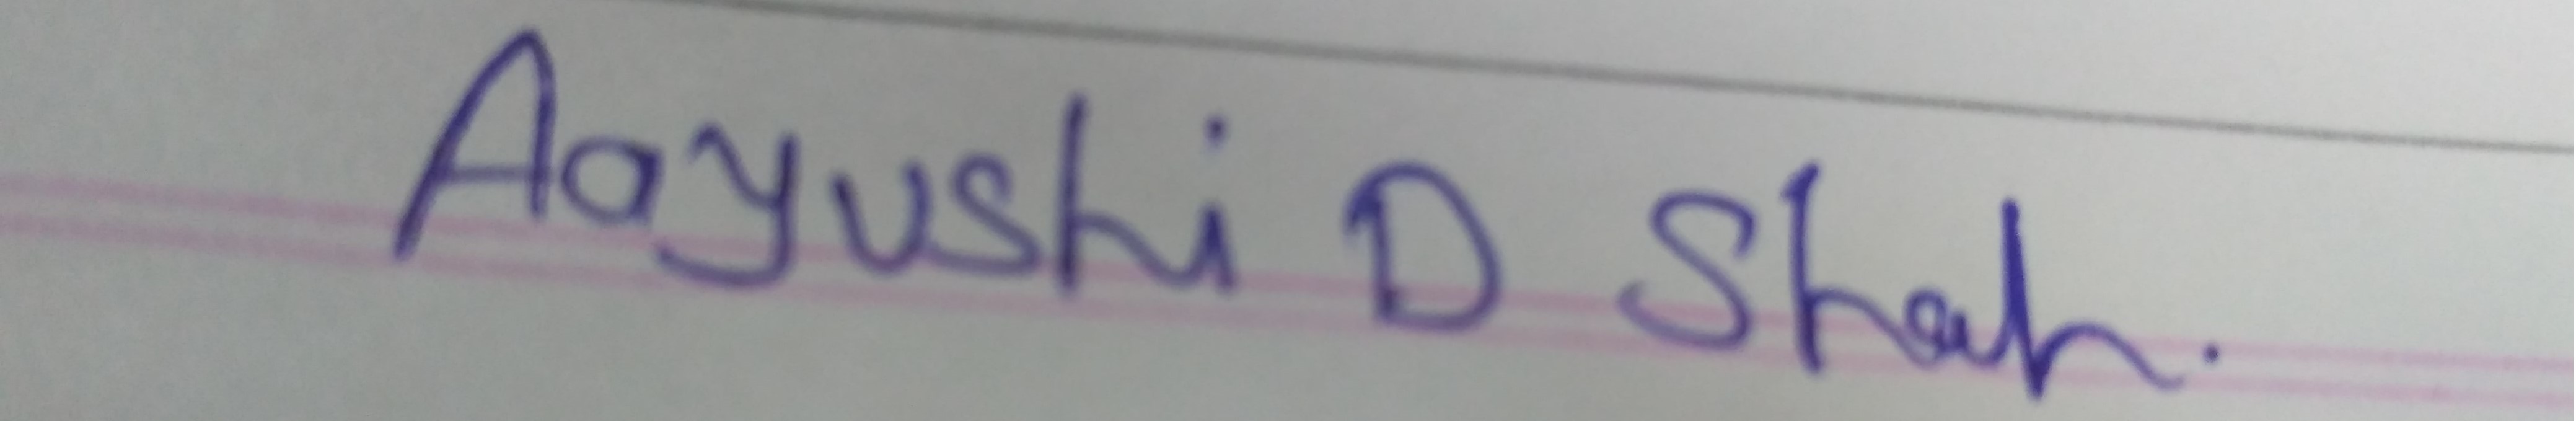 Aayushi D Shah.